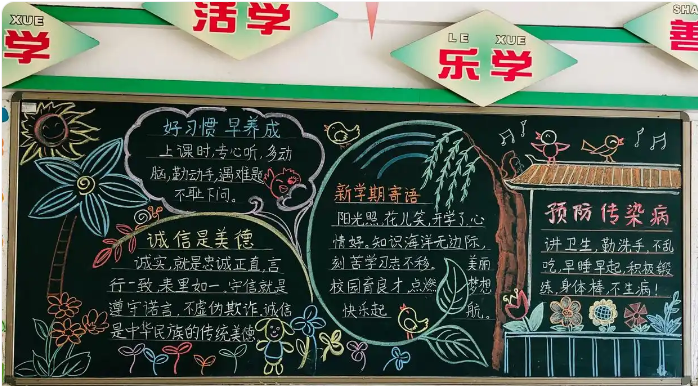 XUE
学
活学
LE XUE
乐学
SHA
善
好习惯 早养成
上课时,专心听,多动
脑,勤动手,遇难题
不耻下问。
诚信是美德
诚实,就是忠诚正直,言
行一致,表里如一,守信就是
遵守诺言,不虚伪欺诈,诚信
是中华民族的传统美德
新学期寄语
阳光照,花儿笑,开学了,心
情好,知识海洋无边际,
刻苦学习志不移。美丽
校园育良才,点燃梦想
快乐起航。
预防传染病
讲卫生,勤洗手,不乱
吃,早睡早起,积极锻
炼,身体棒,不生病!